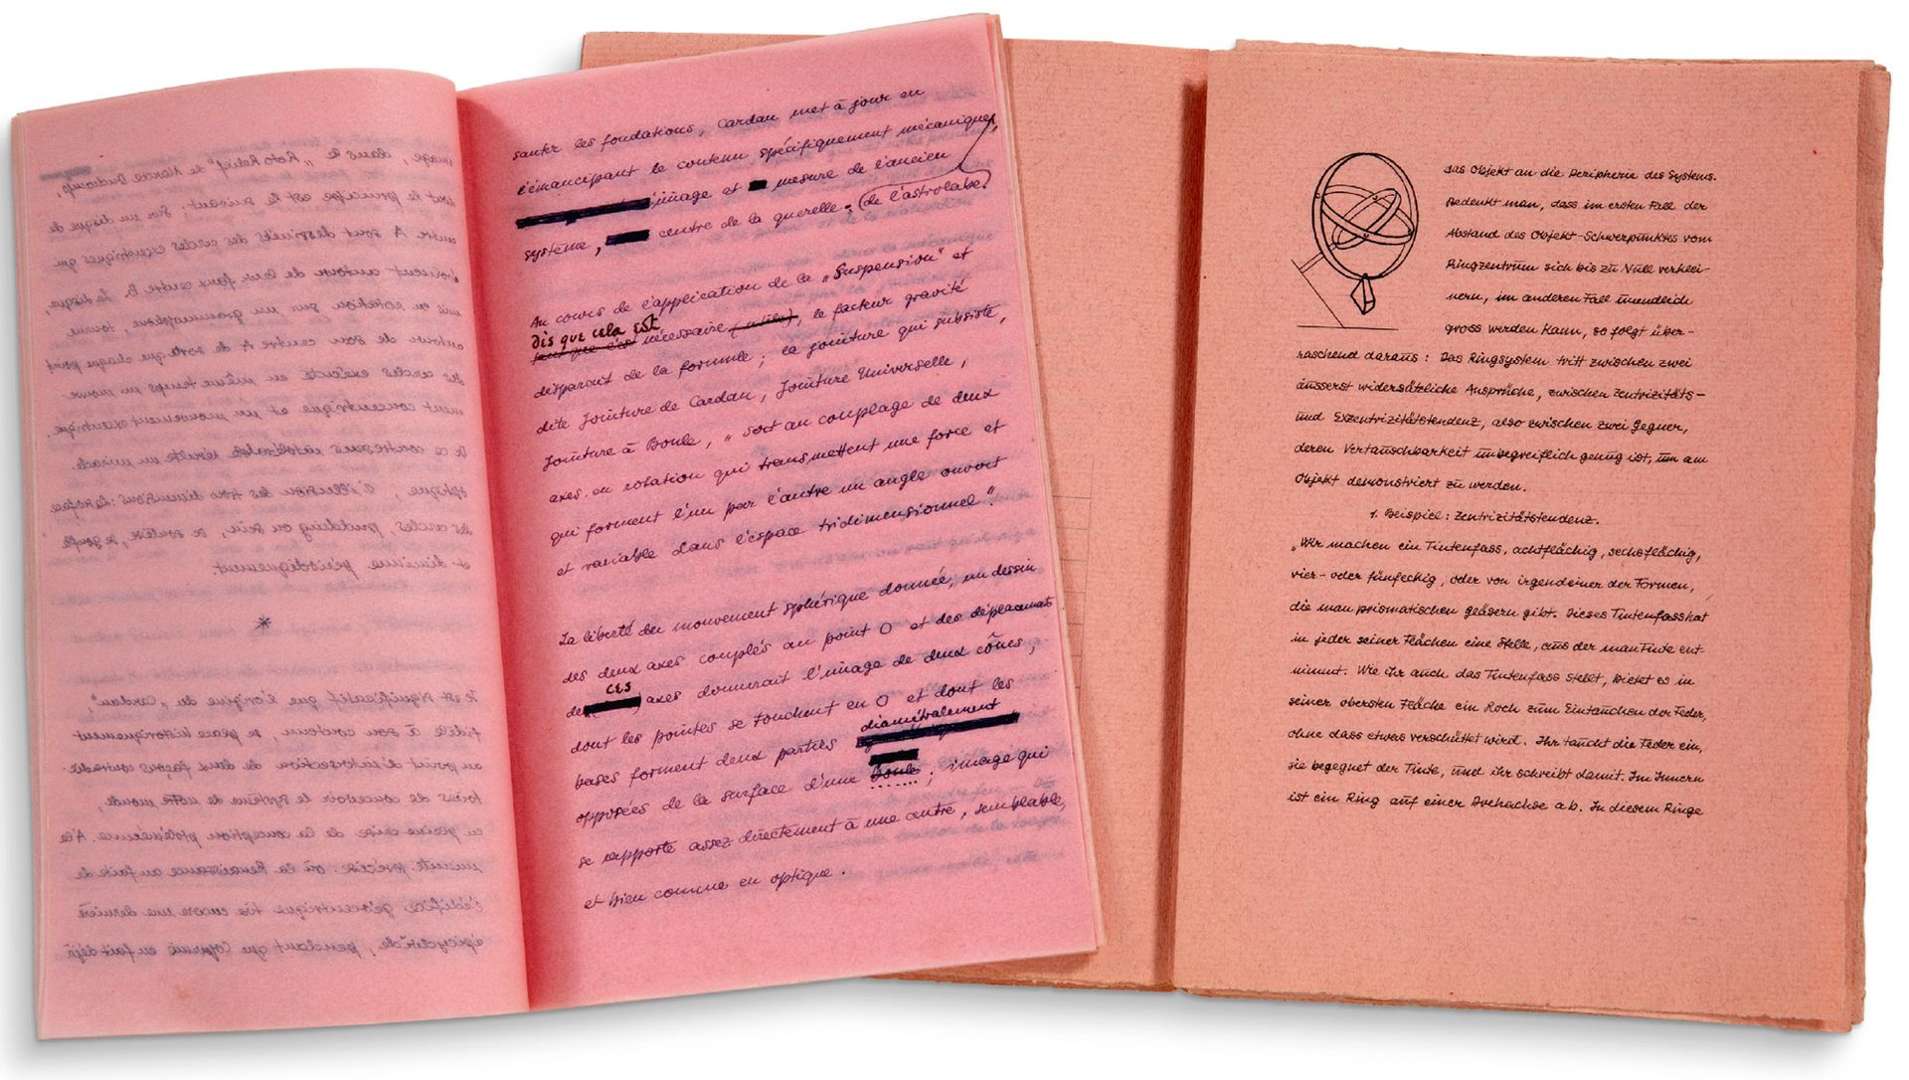 image, dans le „Roto Relief" de Marcel Duchamp,
dont le principe est le suivant: Sur un disque de
centre A sont dessinés des cercles excentriques qui
tournent autour de leur faux centre B. Le disque,
mis en rotation sur un gramophone, tourne
autour de son centre A de sorte que chaque point
des cercles exécute en même temps un mouve-
ment concentrique et un mouvement excentrique.
De ce contresens résulte un miracle
optique, l'illusion des trois dimensions: la surface
des cercles, pudding ou sein, se soulève, se gonfle
et diminue périodiquement.
*
Il est significatif que l'origine du „Cardan",
fidèle à son contenu, se place historiquement
au point d'intersection de deux façons contradic-
toires de concevoir le système de notre monde,
en pleine crise de la conception ptoléméenne. A la
minute précise où la Renaissance au faîte de
l'édifice géocentrique tire encore une dernière
épicycloïde, pendant que en fait déjà
sauter les fondations, Cardan met à jour en
l'émancipant le contenu spécifiquement mécanique,
image et mesure de l'ancien
système, centre de la querelle. de l'astrolabe.
Au cours de l'application de la „Suspension" et
dis que cela est nécessaire, le facteur gravité
disparait de la formule ; la jointure qui subsiste,
dite Jointure de Cardan, Jointure Universelle,
Jointure à Boule, „ soit au couplage de deux
axes en rotation qui transmettent une force et
qui forment l'un par l'autre un angle ouvert
et variable dans l'espace tridimensionnel".
La liberté du mouvement sphérique donnée, un dessin
des deux axes couplés au point O et des déplacements
de ces axes donnerait l'image de deux cônes,
dont les pointes se touchent en O et dont les
bases forment deux parties diamétralement
opposées de la surface d'une boule ; image qui
se rapporte assez directement à une autre, semblable,
et bien connue en optique.
das Objekt an die Peripherie des Systems.
Bedenkt man, dass im ersten Fall der
Abstand des Objekt-Schwerpunktes vom
Ringzentrum sich bis zu Null verklei-
nern, im anderen Fall unendlich
gross werden kann, so folgt über-
raschend daraus : Das Ringsystem tritt zwischen zwei
äusserst widersätzliche Ansprüche, zwischen Zentrizitäts-
und Exzentrizitätstendenz, also zwischen zwei Gegner,
deren Vertauschbarkeit unbegreiflich genug ist, um am
Objekt demonstriert zu werden.
1. Beispiel : Zentrizitätstendenz.
„Wir machen ein Tintenfass, achtflächig, sechsflächig,
vier- oder fünfeckig, oder von irgendeiner der Formen,
die man prismatischen Gläsern gibt. Dieses Tintenfass hat
in jeder seiner Flächen eine Stelle, aus der man Tinte ent-
nimmt. Wie ihr auch das Tintenfass stellt, bietet es in
seiner obersten Fläche ein Loch zum Eintauchen der Feder,
ohne dass etwas verschüttet wird. Ihr taucht die Feder ein,
sie begegnet der Tinte, und ihr schreibt damit. Im Innern
ist ein Ring auf einer Drehachse a b. In diesem Ringe